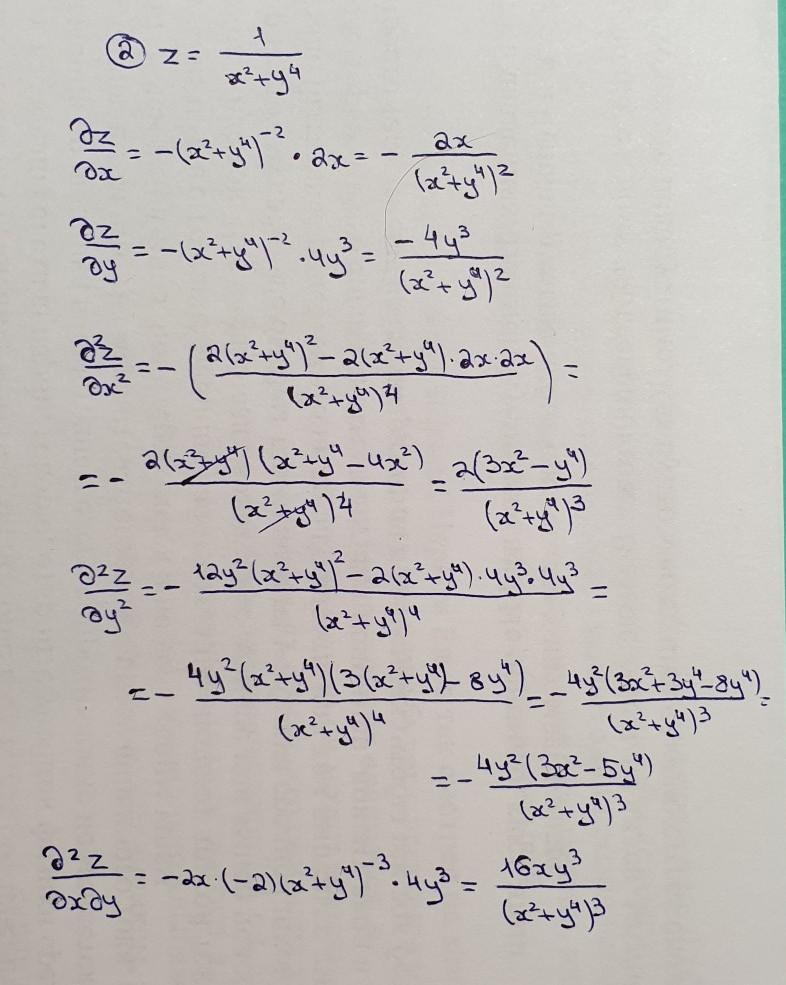 ② z = 1/(x²+y⁴)
∂z/∂x = -(x²+y⁴)⁻² · 2x = - 2x/(x²+y⁴)²
∂z/∂y = -(x²+y⁴)⁻² · 4y³ = -4y³/(x²+y⁴)²
∂²z/∂x² = -( (2(x²+y⁴)² - 2(x²+y⁴) · 2x · 2x)/(x²+y⁴)⁴ ) =
= - 2(x²+y⁴)(x²+y⁴-4x²)/(x²+y⁴)⁴ = 2(3x²-y⁴)/(x²+y⁴)³
∂²z/∂y² = - (12y²(x²+y⁴)² - 2(x²+y⁴) · 4y³ · 4y³)/(x²+y⁴)⁴ =
= - 4y²(x²+y⁴)(3(x²+y⁴) - 8y⁴)/(x²+y⁴)⁴ = - 4y²(3x²+3y⁴-8y⁴)/(x²+y⁴)³ =
= - 4y²(3x²-5y⁴)/(x²+y⁴)³
∂²z/∂x∂y = -2x · (-2)(x²+y⁴)⁻³ · 4y³ = 16xy³/(x²+y⁴)³